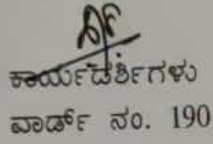 ಕಾರ್ಯದರ್ಶಿಗಳು
ವಾರ್ಡ್ ನಂ. 190